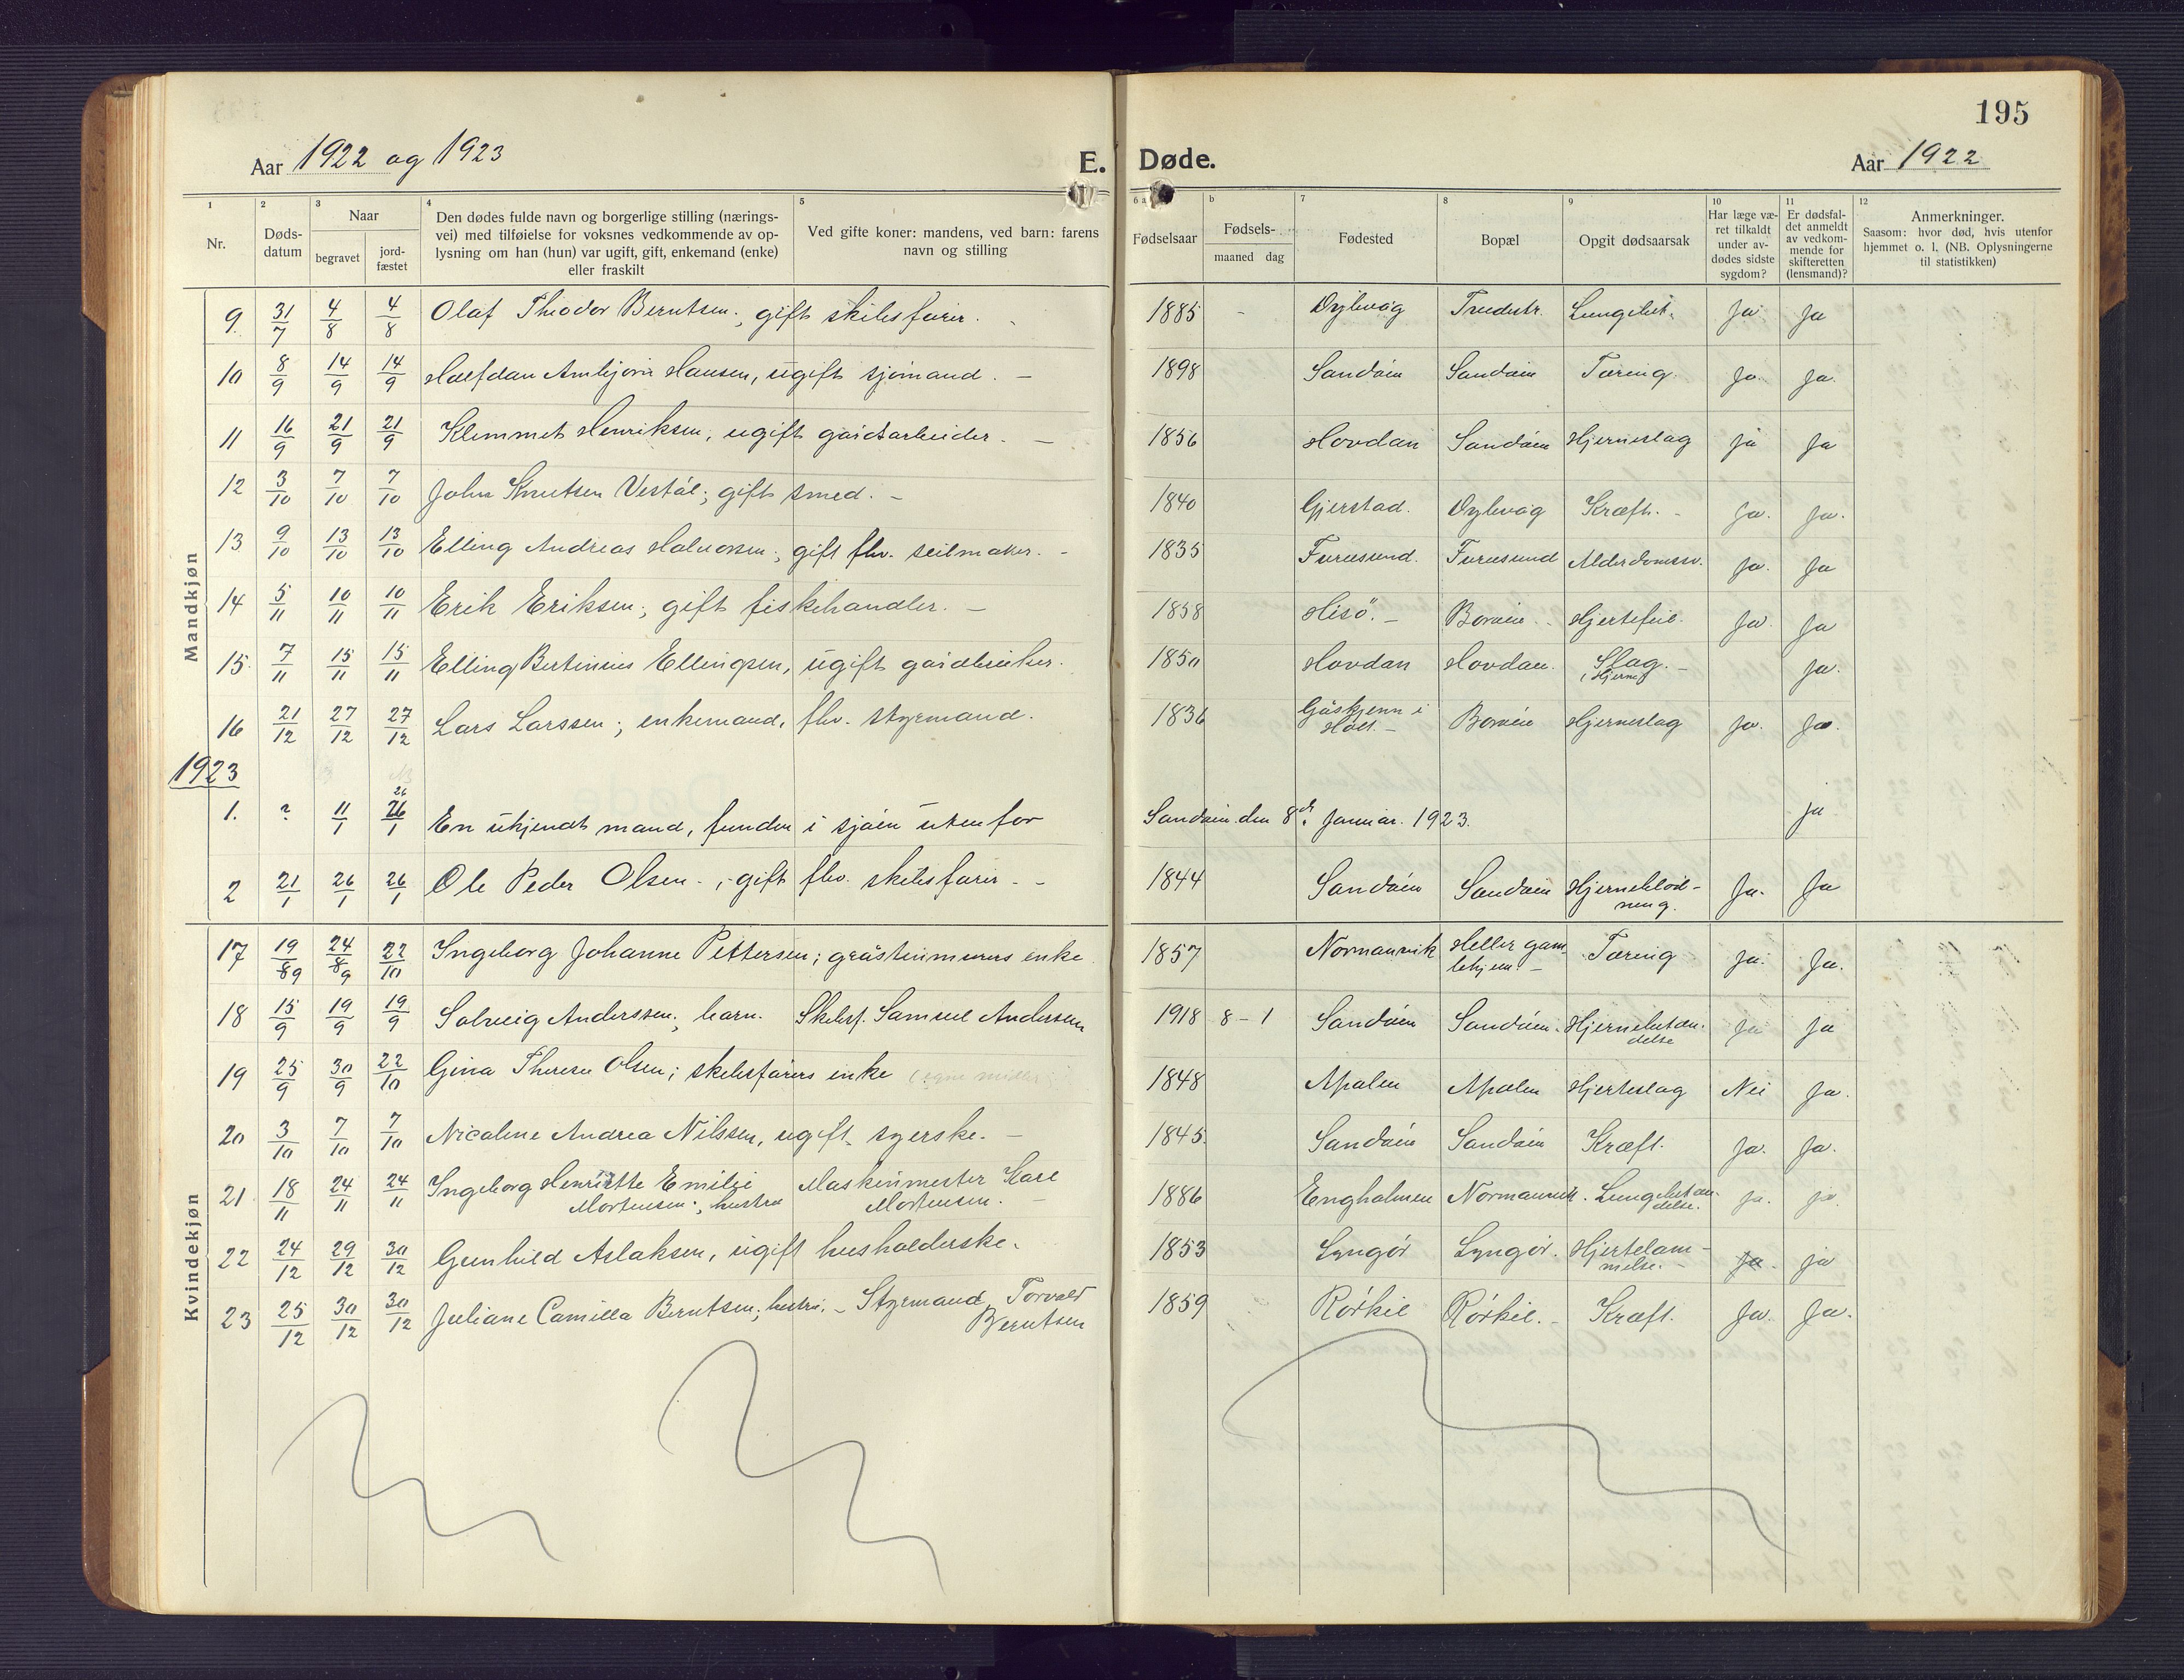 195
Aar 1922 og 1923 E. Døde. Aar 1922
1 2 3 4 5 6 a b 7 8 9 10 11 12
Nr. Dødsdatum Naar begravet jordfæstet
Den dødes fulde navn og borgerlige stilling (nærings-
vei) med tilføielse for voksnes vedkommende av op-
lysning om han (hun) var ugift, gift, enkemand (enke)
eller fraskilt
Ved gifte koner: mandens, ved barn: farens
navn og stilling
Fødselsaar Fødsels- maaned dag Fødested Bopæl Opgit dødsaarsak
Har læge væ-
ret tilkaldt
under av-
dødes sidste
sygdom?
Er dødsfal-
det anmeldt
av vedkom-
mende for
skifteretten
(lensmand)?
Anmerkninger.
Saasom: hvor død, hvis utenfor
hjemmet o. l. (NB. Oplysningerne
til statistikken)
Mandkjøn
9 31/7 4/8 4/8 Olaf Theodor Berntsen; gift skibsfører. 1885 - Dybvåg Lungebet. Ja Ja
10 8/9 14/9 14/9 Halfdan Hansen, ugift sjømand. — 1898 Sandøien Sandøien Tæring. Ja. Ja.
11 16/9 21/9 21/9 Klemmet Henriksen, ugift gårdsarbeider. — 1856 Hovdan Sandøien Hjerneslag ja Ja
12 3/10 7/10 7/10 John Knutsen Vestøl; gift smed. - 1840 Gjerstad. Dybvåg Kræft. - Ja. Ja.
13 9/10 13/10 13/10 Elling Andreas Halvorsen; gift fhv. seilmaker. - 1835 Furøsund. Furøsund Alderdomssv. Ja. Ja
14 5/11 10/11 10/11 Erik Eriksen; gift fiskehandler. — 1858 Hisö. - Borøien Hjertefeil. Ja. Ja
15. 7/11 15/11 15/11 Elling Bertinius Ellingsen, ugift gårdbruker. 1850 Hovdan Hovdan. Slag. - (Hjerne) Ja.
16 21/12 27/12 27/12 Lars Larssen; enkemand, fhv. styrmand. 1836 Gåskjenn i Holt. - Borøien Hjerneslag Ja. Ja.
1923
1. ? 11/1 26/1 En ukjendt mand, funden i sjøen utenfor Sandøien den 8de Januar. 1923. Ja
2 21/1 26/1 26/1 Ole Peder Olsen. ; gift fhv. skibsfører. - 1844 Sandøien Sandøien Hjerneblødning. Ja. Ja
Kvindekjøn
17 19/9 24/9 22/10 Ingeborg Johanne Pettersen; gråsteinmurers enke 1857 Normannvik Heller gamlehjem. - Tæring Ja. Ja.
18 15/9 19/9 19/9 Solveig Anderssen; barn. Skibsf. Samuel Anderssen 1918 8 - 1 Sandøien Sandøien. Hjernebetændelse Ja Ja
19 25/9 30/9 22/10 Gina Therese Olsen; skibsførers enke 1848 Apalen Apalen Hjerteslag Nei Ja.
20 3/10 7/10 7/10 Nicoline Andrea Nilssen, ugift syerske. — 1845. Sandøien Sandøien Kræft. Ja. Ja.
21. 18/11 24/11 24/11 Ingeborg Henriette Emilie Mortensen; hustru Maskinmester Kare Mortensen. - 1886 Engholmen Normannvik. Lungebetændelse. Ja. Ja.
22 24/12 29/12 30/12 Gunhild Aslaksen, ugift husholderske. 1853 Lyngør Lyngør. Hjertelammelse. - Ja. ja
23 25/12 30/12 30/12 Juliane Camilla Berntsen; hustru. - Styrmand Torvald Berntsen 1859 Rörkil Rörkil. - Kræft. Ja. Ja.